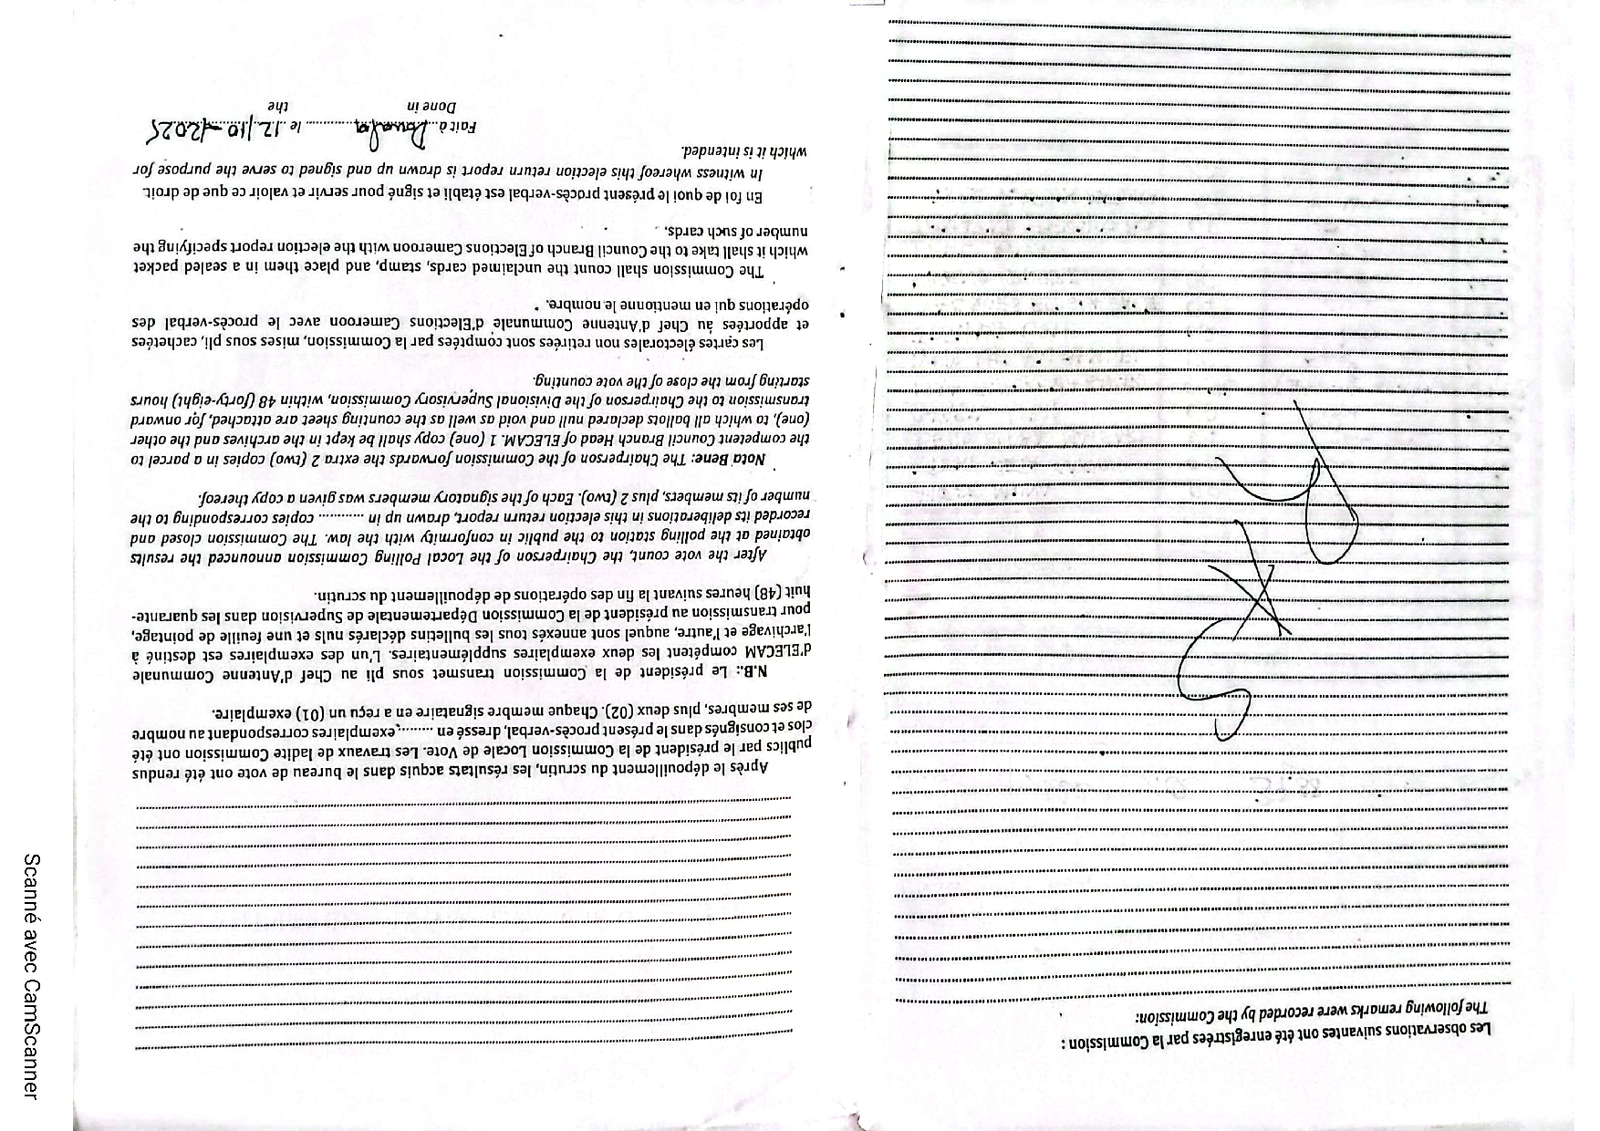 Les observations suivantes ont été enregistrées par la Commission :
The following remarks were recorded by the Commission:
Après le dépouillement du scrutin, les résultats acquis dans le bureau de vote ont été rendus
publics par le président de la Commission Locale de Vote. Les travaux de ladite Commission ont été
clos et consignés dans le présent procès-verbal, dressé en ........ exemplaires correspondant au nombre
de ses membres, plus deux (02). Chaque membre signataire en a reçu un (01) exemplaire.
N.B.: Le président de la Commission transmet sous pli au Chef d'Antenne Communale
d'ELECAM compétent les deux exemplaires supplémentaires. L'un des exemplaires est destiné à
l'archivage et l'autre, auquel sont annexés tous les bulletins déclarés nuls et une feuille de pointage,
pour transmission au président de la Commission Départementale de Supervision dans les quarante-
huit (48) heures suivant la fin des opérations de dépouillement du scrutin.
After the vote count, the Chairperson of the Local Polling Commission announced the results
obtained at the polling station to the public in conformity with the law. The Commission closed and
recorded its deliberations in this election return report, drawn up in ........... copies corresponding to the
number of its members, plus 2 (two). Each of the signatory members was given a copy thereof.
Nota Bene: The Chairperson of the Commission forwards the extra 2 (two) copies in a parcel to
the competent Council Branch Head of ELECAM. 1 (one) copy shall be kept in the archives and the other
(one), to which all ballots declared null and void as well as the counting sheet are attached, for onward
transmission to the Chairperson of the Divisional Supervisory Commission, within 48 (forty-eight) hours
starting from the close of the vote counting.
Les cartes électorales non retirées sont comptées par la Commission, mises sous pli, cachetées
et apportées au Chef d'Antenne Communale d'Elections Cameroon avec le procès-verbal des
opérations qui en mentionne le nombre.
The Commission shall count the unclaimed cards, stamp, and place them in a sealed packet
which it shall take to the Council Branch of Elections Cameroon with the election report specifying the
number of such cards.
En foi de quoi le présent procès-verbal est établi et signé pour servir et valoir ce que de droit.
In witness whereof this election return report is drawn up and signed to serve the purpose for
which it is intended.
Fait à Douala le 12/10/2025
Done in the
Scanné avec CamScanner